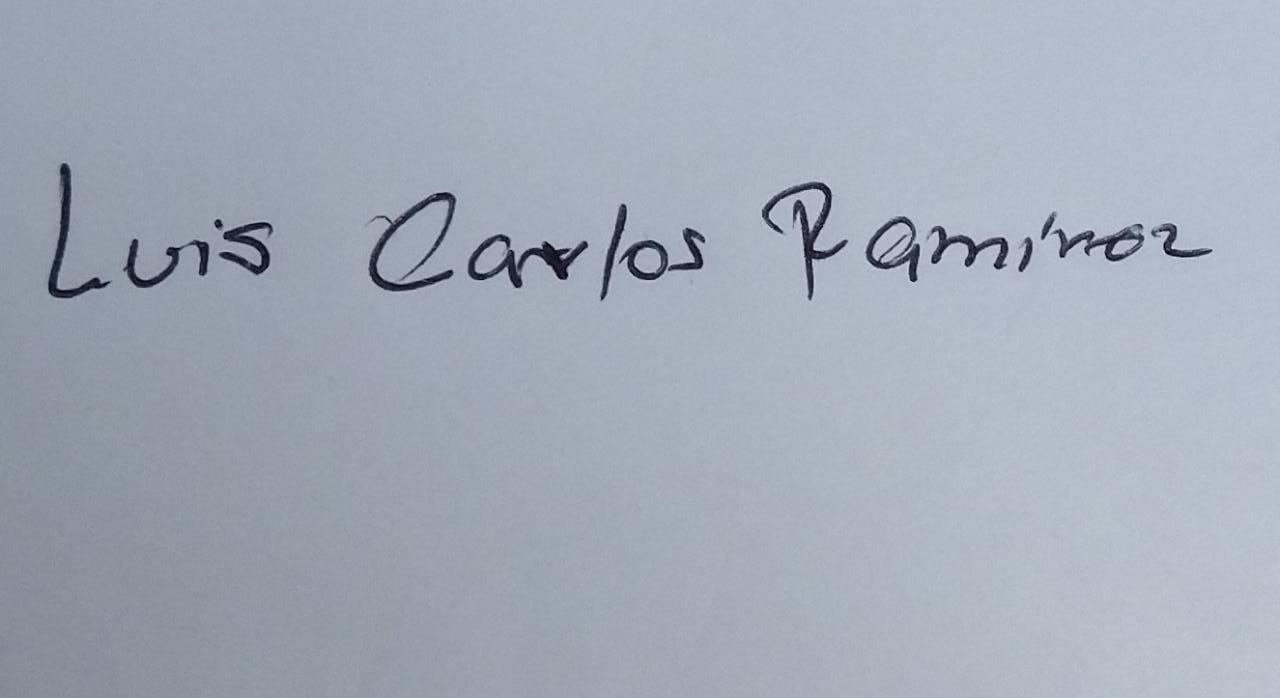 Luis Carlos Ramírez